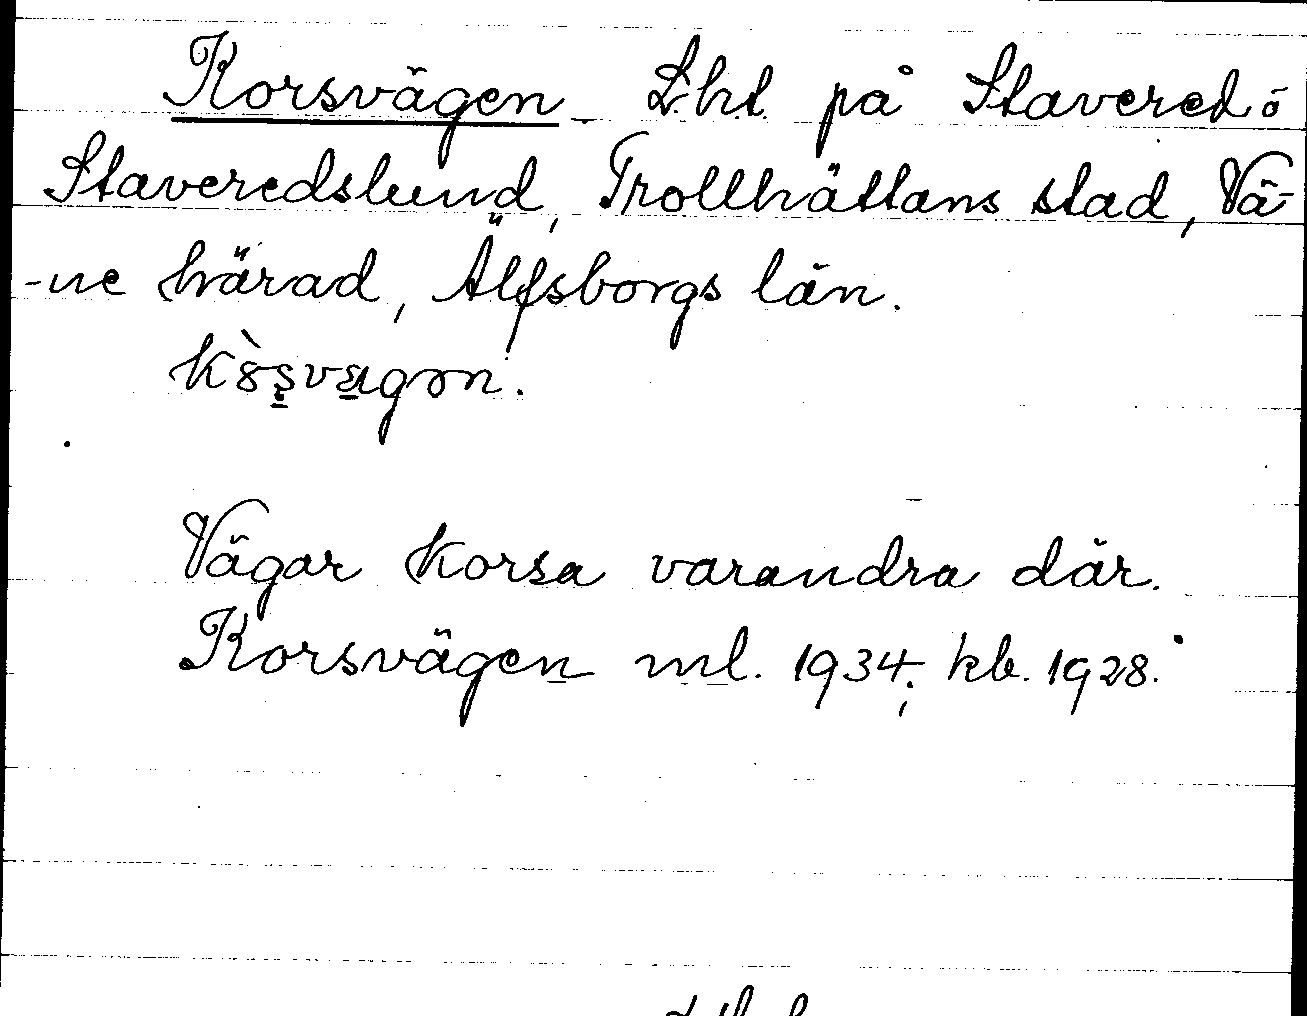 Korsvägen Lht. på Stavered ö
Staveredslund, Trollhättans stad, Vä-
-ne härad, Älfsborgs län.
Vägar korsa varandra där.
Korsvägen ml. 1934; kb. 1928.